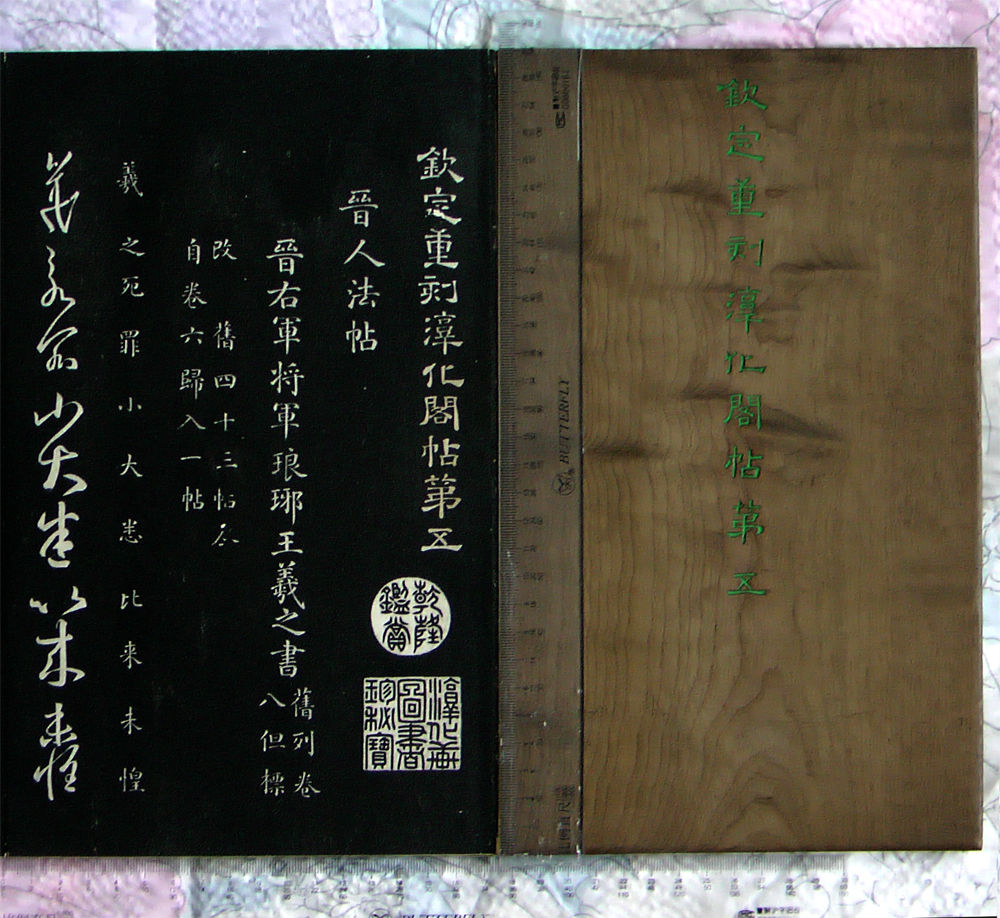 欽定重刻淳化閣帖第五
BUTTERFLY
欽定重刻淳化閣帖第五
乾隆
鑑賞
淳化軒
圖書
珍秘寶
晉人法帖
晉右軍将軍琅琊王羲之書
舊列卷
八但標
改舊四十三帖
自卷六歸入一帖
羲之死罪小大悉比来未惶
羲之死罪小大悉比来未惶